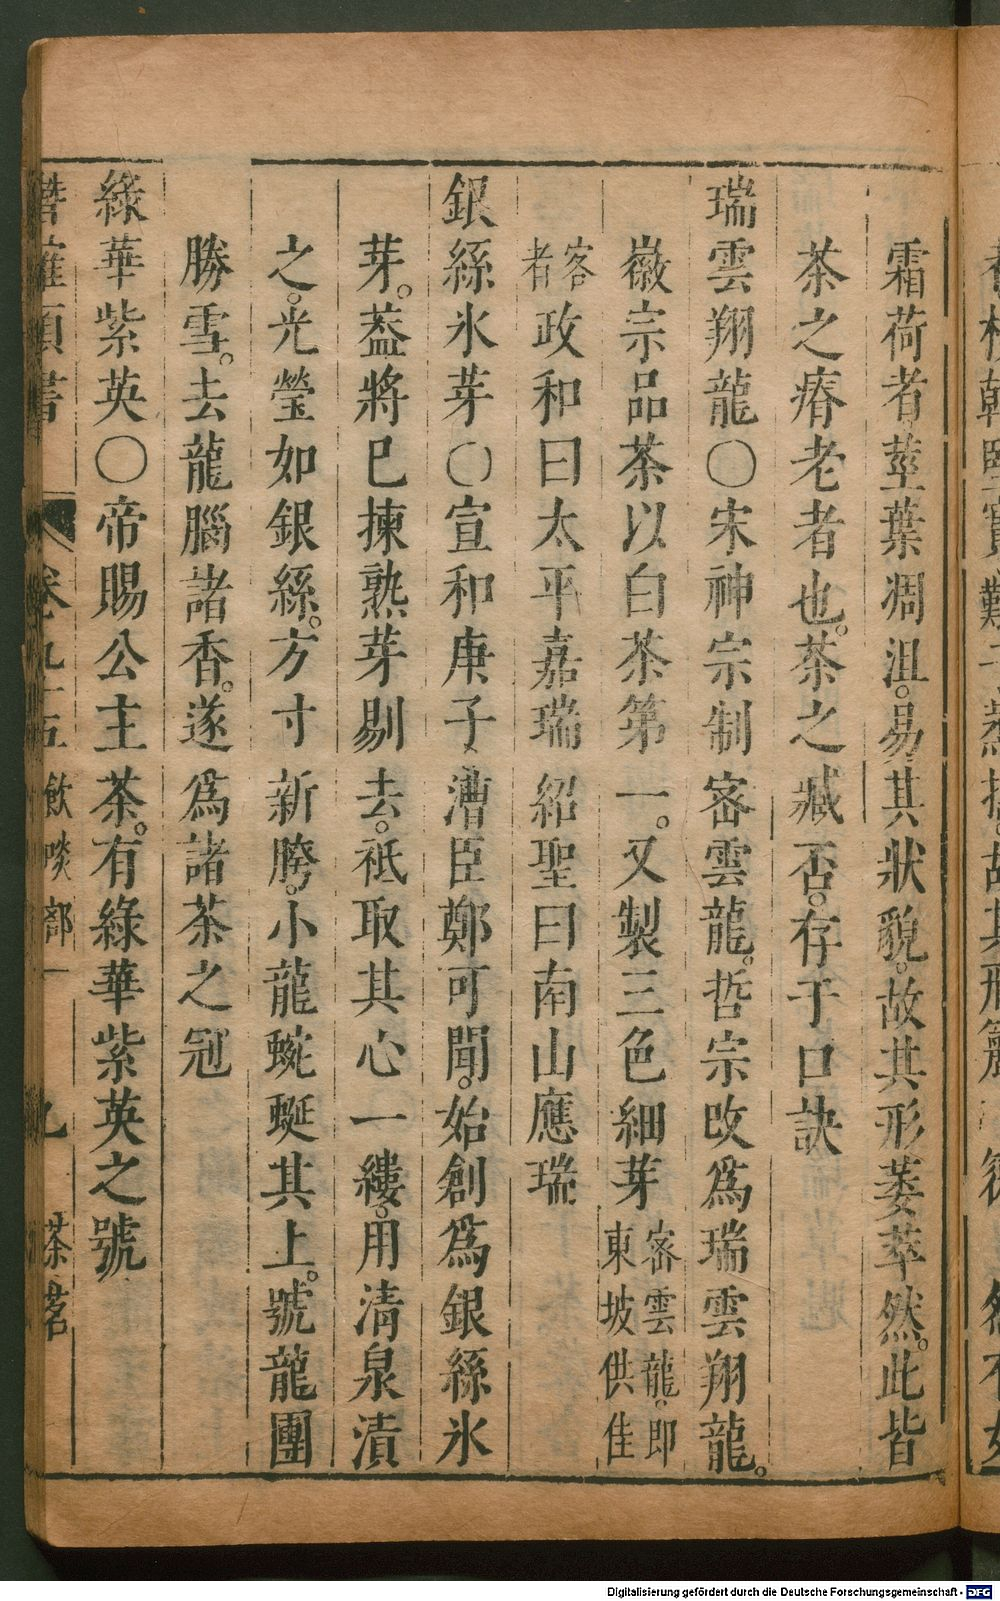 霜荷者。莖葉凋沮。易其狀貌。故其形萎萃然。此皆
茶之瘠老者也。茶之臧否。存于口訣
瑞雲翔龍〇宋神宗制密雲龍。哲宗改爲瑞雲翔龍。
徽宗品茶以白茶第一。又製三色細芽密雲龍。即東坡供佳
客者政和曰太平嘉瑞紹聖曰南山應瑞
銀絲氷芽〇宣和庚子漕臣鄭可聞。始創爲銀絲氷
芽。葢將已揀熟芽剔去。祇取其心一縷。用清泉漬
之。光瑩如銀絲。方寸新胯。小龍蜿蜒其上。號龍團
勝雪。去龍腦諸香。遂爲諸茶之冠
綠華紫英〇帝賜公主茶。有綠華紫英之號
卷九十五 飲啖部一 九 茶茗
Digitalisierung gefördert durch die Deutsche Forschungsgemeinschaft - DFG